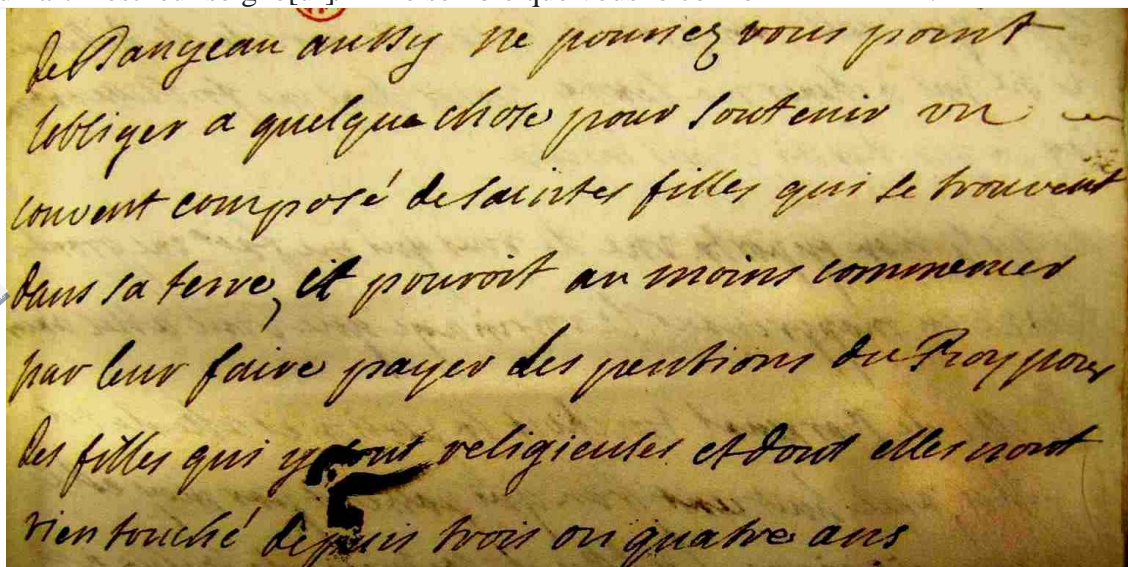 de Dangeau aussy ne pouriez vous point
lobliger a quelque chose pour soutenir un
couvent composé de saintes filles qui se trouvent
dans sa terre, il pouroit au moins commencer
par leur faire payer des pentions du Roy pour
des filles qui y sont religieuses et dont elles nont
rien touché depuis trois ou quatre ans